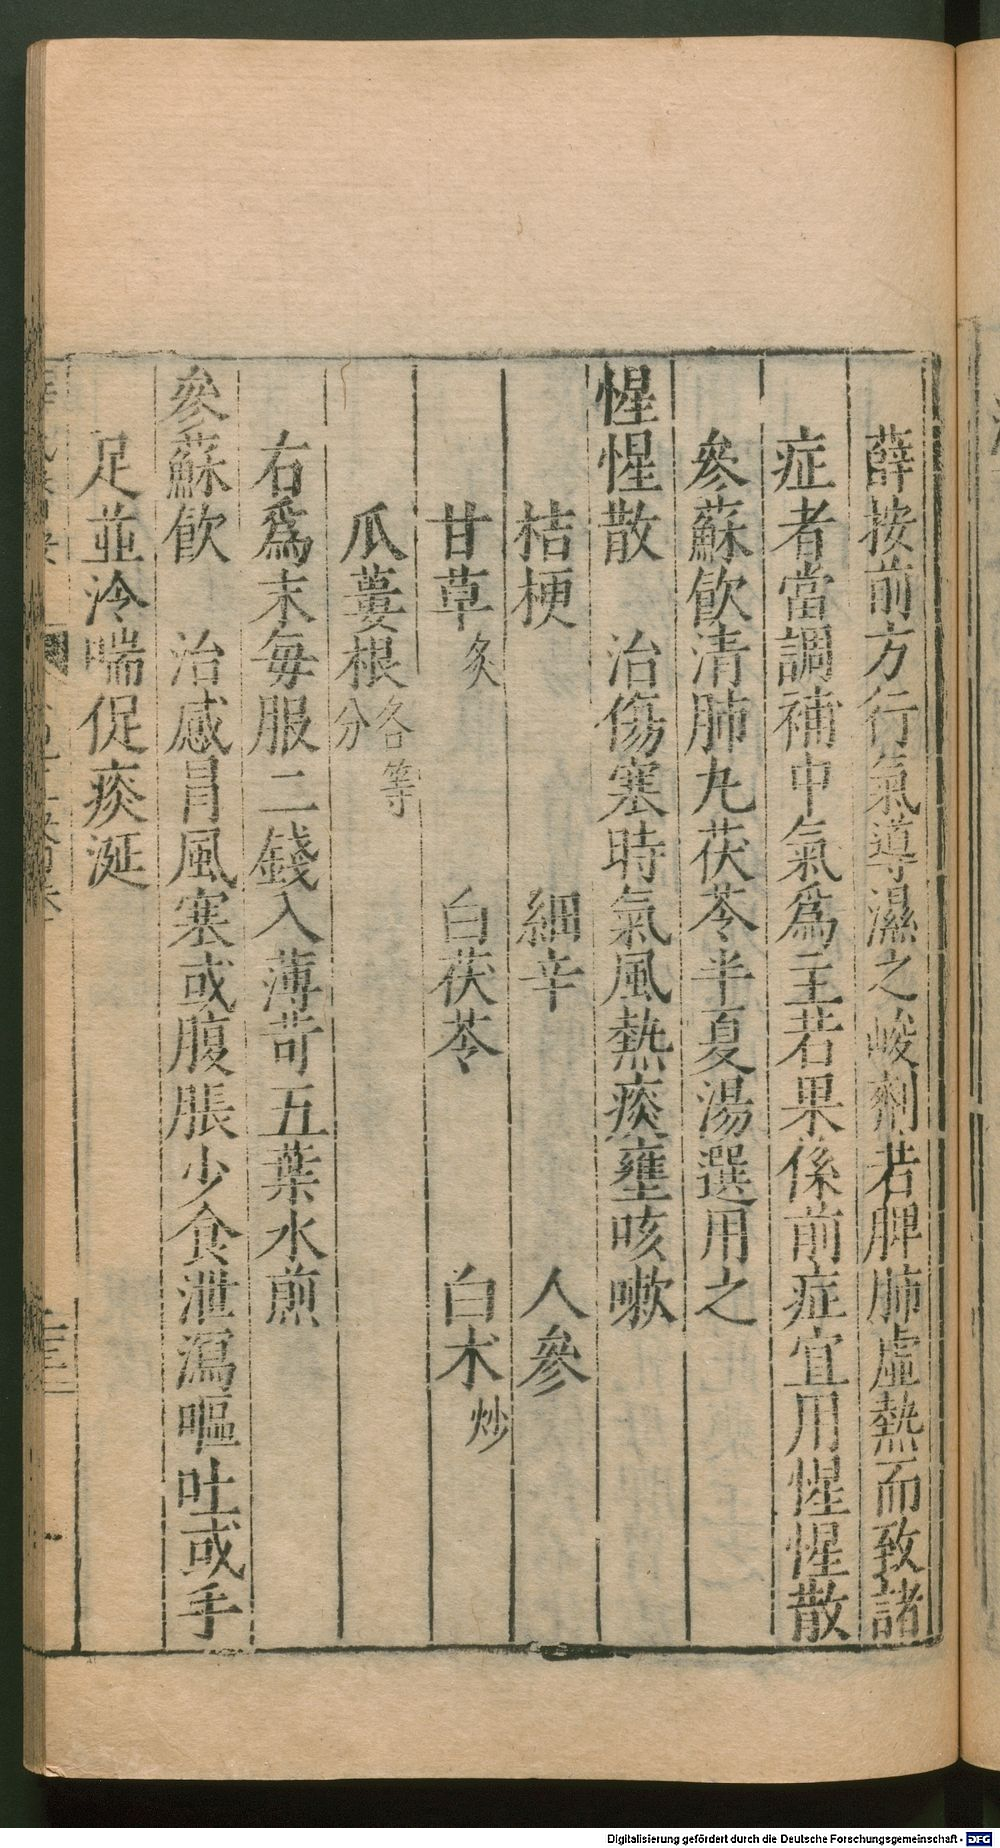 薛按前方行氣導濕之峻劑若脾肺虛熱而致諸
症者當調補中氣爲主若果係前症宜用惺惺散
參蘇飮清肺丸茯苓半夏湯選用之
惺惺散　治傷寒時氣風熱痰壅咳嗽
桔梗　細辛　人參
甘草炙　白茯苓　白朮炒
瓜蔞根各等分
右爲末毎服二錢入薄苛五葉水煎
參蘇飮　治感冒風寒或腹脹少食泄瀉嘔吐或手
足並冷喘促痰涎
Digitalisierung gefördert durch die Deutsche Forschungsgemeinschaft - DFG